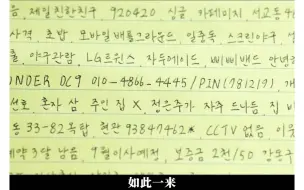 음. 제일친한친구 920420 싱글 카페미지 서교동
사격 초밥 모바일배틀그라운드 일중독 스크린야구
출. 야구관람. LG트윈스 자두에이드. 삐삐밴드 안녕
NDER DC9 010-4866-4445/PIN(781219) 개
선호. 혼자 삼. 주인 집 X. 정은주가 자주 드나듬. 집 비
동 33-82옥탑. 현관 93847462* CCTV 없음. 이웃
계약 3달 남음. 9월이사예정. 보증금 2천/50 강동구
如此一来